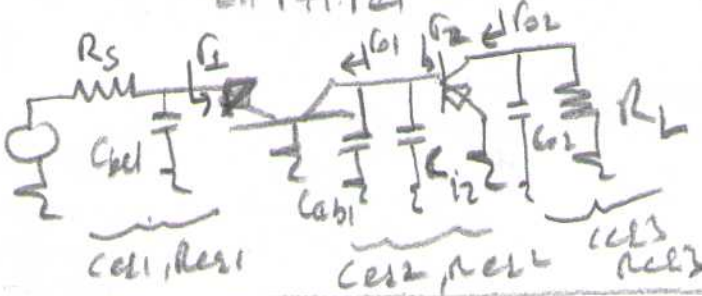 Rs r1 ro1 r2 ro2
Cbe1 Cab1 Ci2 Co2 RL
Ceq1, Req1 Ceq2, Req2 Ceq3
Req3